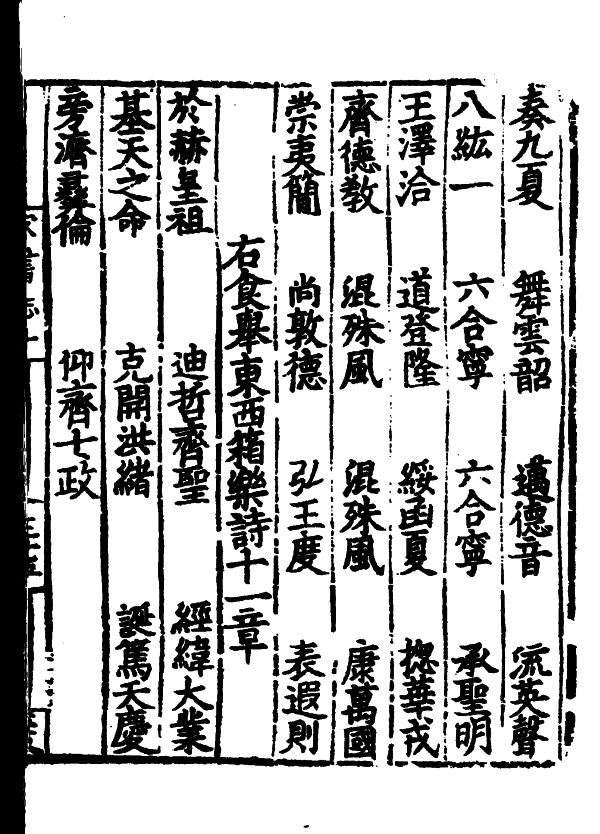 奏九夏　舞雲韶　邁德音　流英聲
八紘一　六合寧　六合寧　承聖明
王澤洽　道登隆　綏函夏　揔華戎
齊德教　混殊風　混殊風　康萬國
崇夷簡　尚敦德　弘王度　表遐則
右食舉東西箱樂詩十一章
於赫皇祖　迪哲齊聖　經緯大業
基天之命　克開洪緒　誕篤天慶
旁濟彞倫　仰齊七政